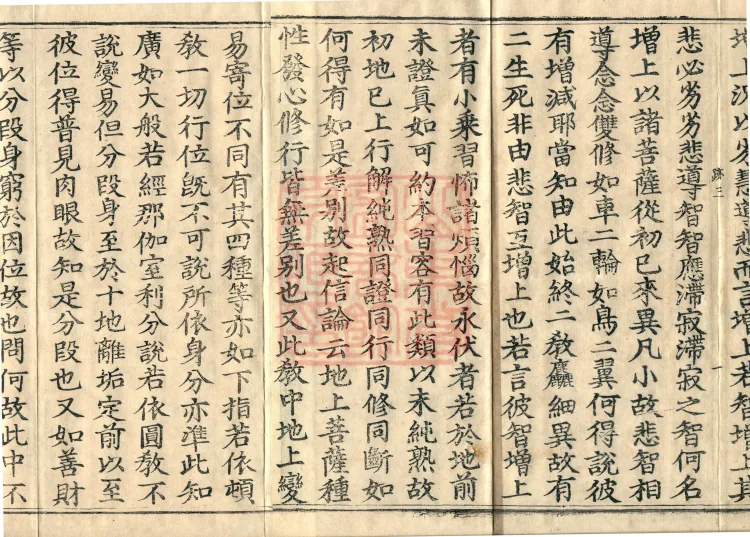 增上况以劣慧導悲而言增上若智增上其
䟽三
一
悲必劣劣悲導智智應滯寂滯寂之智何名
增上以諸菩薩從初已來異凡小故悲智相
導念念雙修如車二輪如鳥二翼何得說彼
有增減耶當知由此始終二教麤細異故有
二生死非由悲智互增上也若言彼智增上
者有小乘習怖諸煩惱故永伏者若於地前
未證真如可約本習容有此類以未純熟故
初地已上行解純熟同證同行同修同斷如
何得有如是差別故起信論云地上菩薩種
性發心修行皆無差別也又此教中地上變
易寄位不同有其四種等亦如下指若依頓
教一切行位既不可說所依身分亦准此知
廣如大般若經那伽室利分說若依圓教不
說變易但分段身至於十地離垢定前以至
彼位得普見肉眼故知是分段也又如善財
等以分段身窮於因位故也問何故此中不